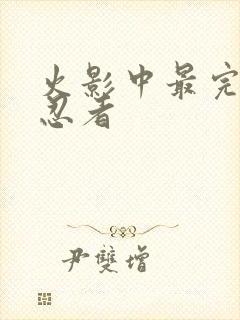 火影中最完
忍者
尹雙增